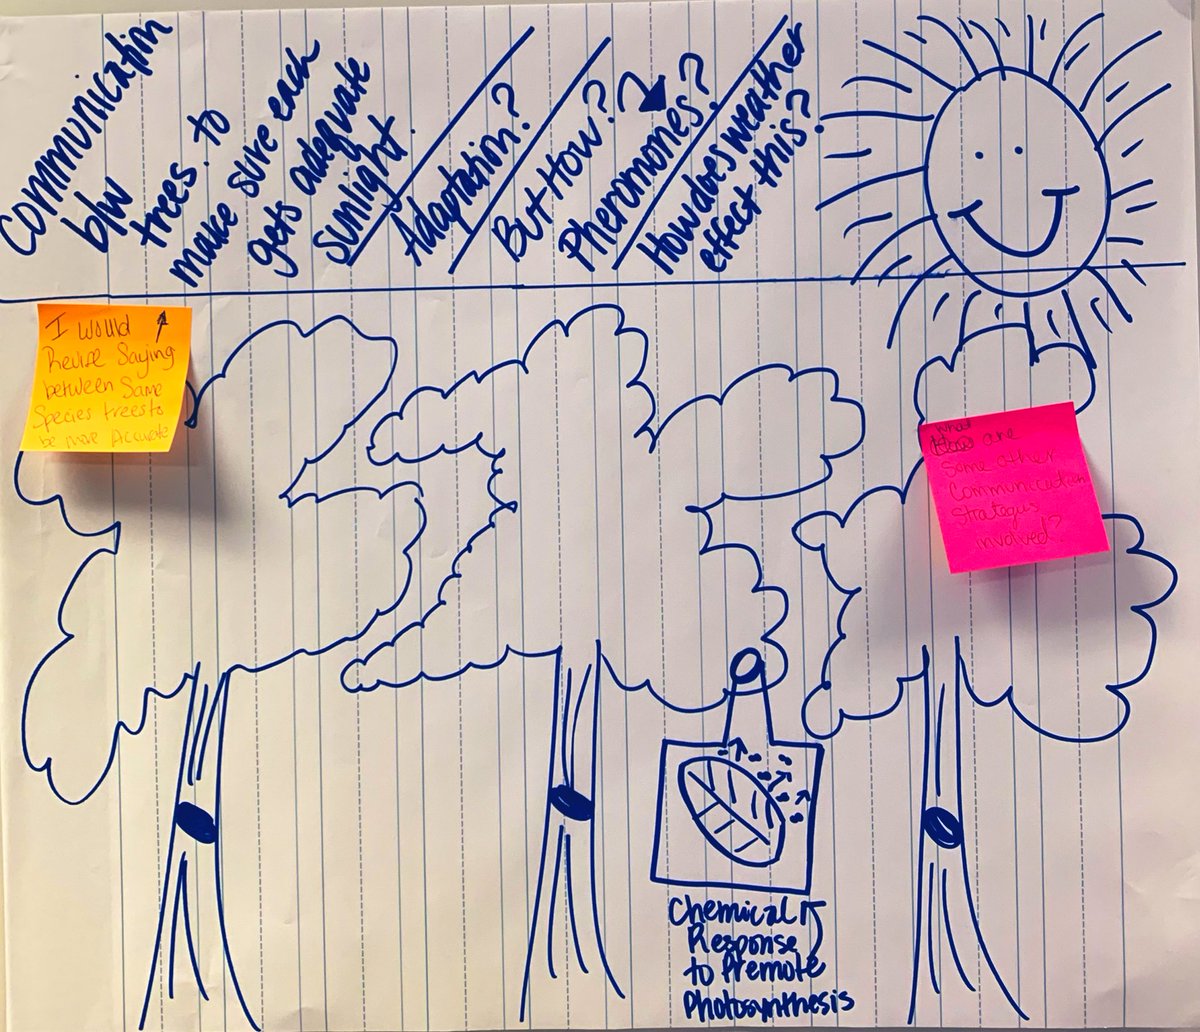 Communication
b/w
trees. to
make sure each
gets adequate
sunlight.
Adaptation?
But How?
Pheromones?
How does weather
effect this?
I would
Revise Saying
between Same
Species trees to
be more Accurate
What are
Some other
Communication
Strategies
involved?
Chemical
Response
to Premote
Photosynthesis